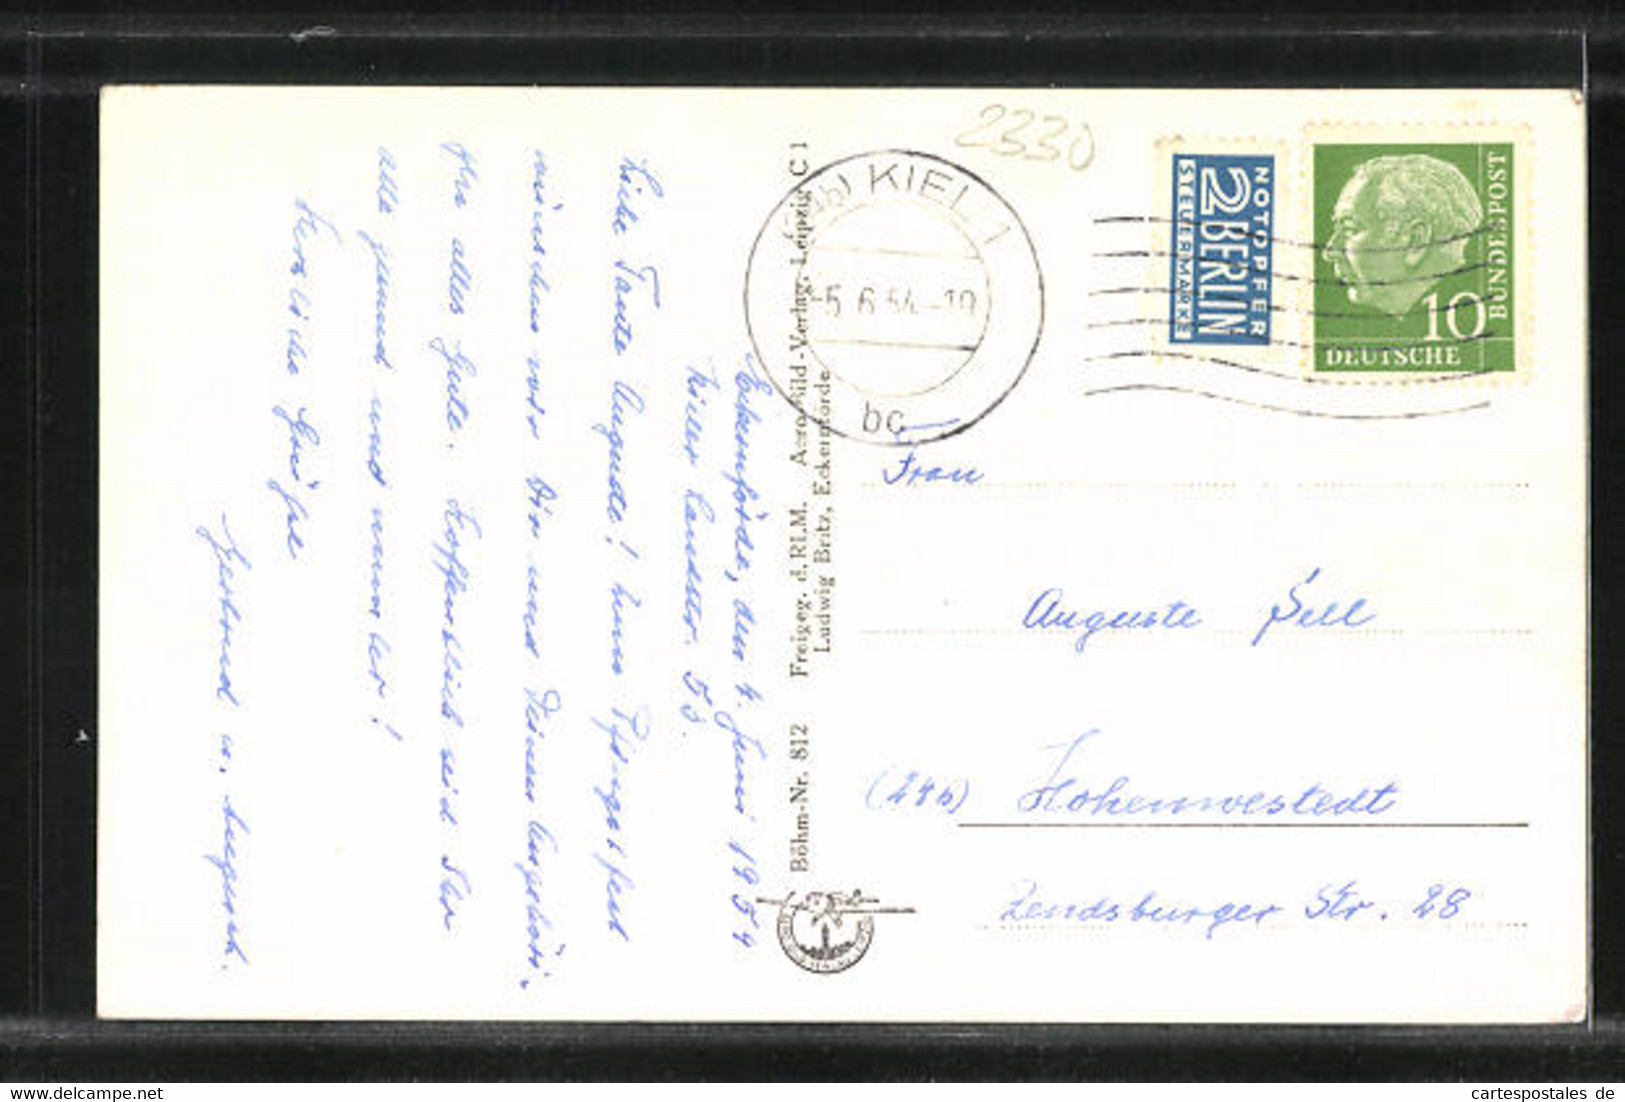 Eckernförde, den 4. Juni 1954
Kieler Landstr. 53.
Liebe Tante Auguste! Zum Pfingstfest
wünschen wir Dir und Deinen Angehöri-
gen alles Gute. Hoffentlich seid Ihr
alle gesund und munter!
Herzliche Grüße
Gertrud u.
Böhm-Nr. 812 Freigeg. d. RLM. Aero-Bild-Verlag, Leipzig C 1
Ludwig Britz, Eckernförde
2330
KIEL 1
-5.6.54.-19
bc
NOTOPFER
2 BERLIN
STEUERMARKE
10
DEUTSCHE
BUNDESPOST
Frau
Auguste Sell
(24b) Hohenwestedt
Rendsburger Str. 28
cartespostales de